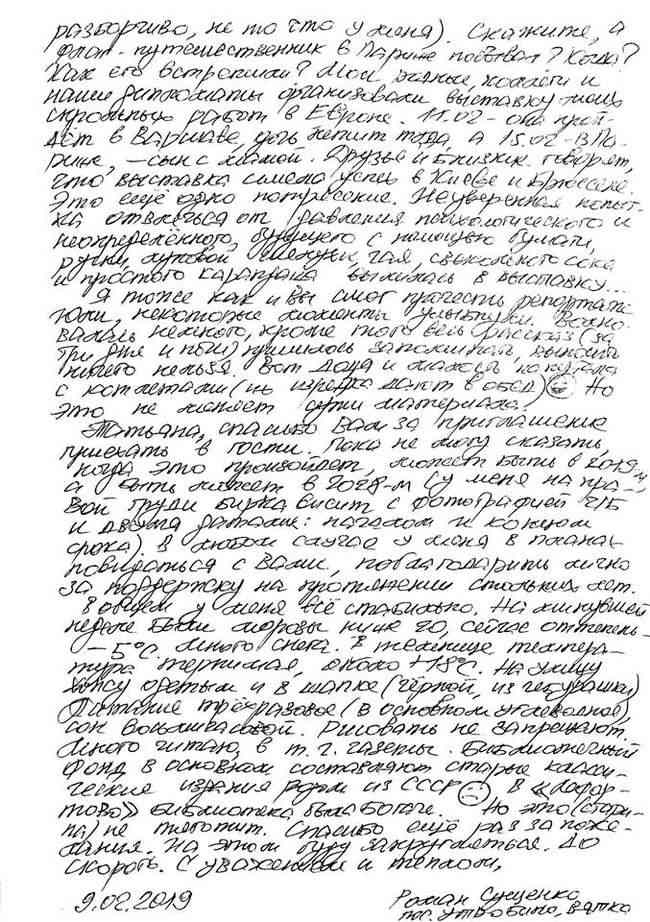 разборчиво, не то что у меня). Скажите, а
флаг-путешественник в Париже побывал? Когда?
Как его встретили? Мои жена, коллеги и
наши дипломаты организовали выставку моих
скромных работ в Европе. 11.02 - она прой-
дёт в Варшаве, дочь летит туда, а 15.02 - в Па-
риже, - сын с мамой. Друзья и близкие говорят,
что выставка имела успех в Киеве и Брюсселе.
Это ещё одно потрясение. Неуверенная попыт-
ка отвлечься от давления психологического и
неопределённого, будущего с помощью бумаги,
ручки, луковой шелухи, чая, свекольного сока
и простого карандаша вылилась в выставку...
Я тоже как и Вы смог прочесть репортаж
Юли, некоторые моменты улыбнули.
немного, кроме того весь рассказ (за
три дня и ночи) пришлось запоминать, выносить
ничего нельзя. Вот Доца и
с котлетами (их изредка дают в обед) Но
это не меняет сути материала.
Татьяна, спасибо Вам за приглашение
приехать в гости. Пока не могу сказать,
когда это произойдёт, может быть в 2019-м,
а быть может в 2028-м (у меня на пра-
вой груди бирка висит с фотографией ч/б
и двумя датами: началом и концом
срока). В любом случае у меня в планах
повидаться с Вами, поблагодарить лично
за поддержку на протяжении стольких лет.
В общем у меня всё стабильно. На минувшей
неделе были морозы ниже 20, сейчас оттепель -
-5°C. Много снега. В темнице темпера-
тура терпимая, около +18°C. На улицу
хожу одетым и в шапке (чёрной, из чебурашки)
Питание трёхразовое (в основном углеводное),
сон восьмичасовой. Рисовать не запрещают.
Много читаю, в т.ч. газеты. Библиотечный
фонд в основном составляют старые класси-
ческие издания родом из СССР В «Лефор-
тово» библиотека была богаче. Но это (стари-
на) не тяготит. Спасибо ещё раз за поже-
лания. На этом буду закругляться. До
скорого. С уважением и теплом,
9.02.2019 Роман Сущенко
пос. Утробино, Вятка